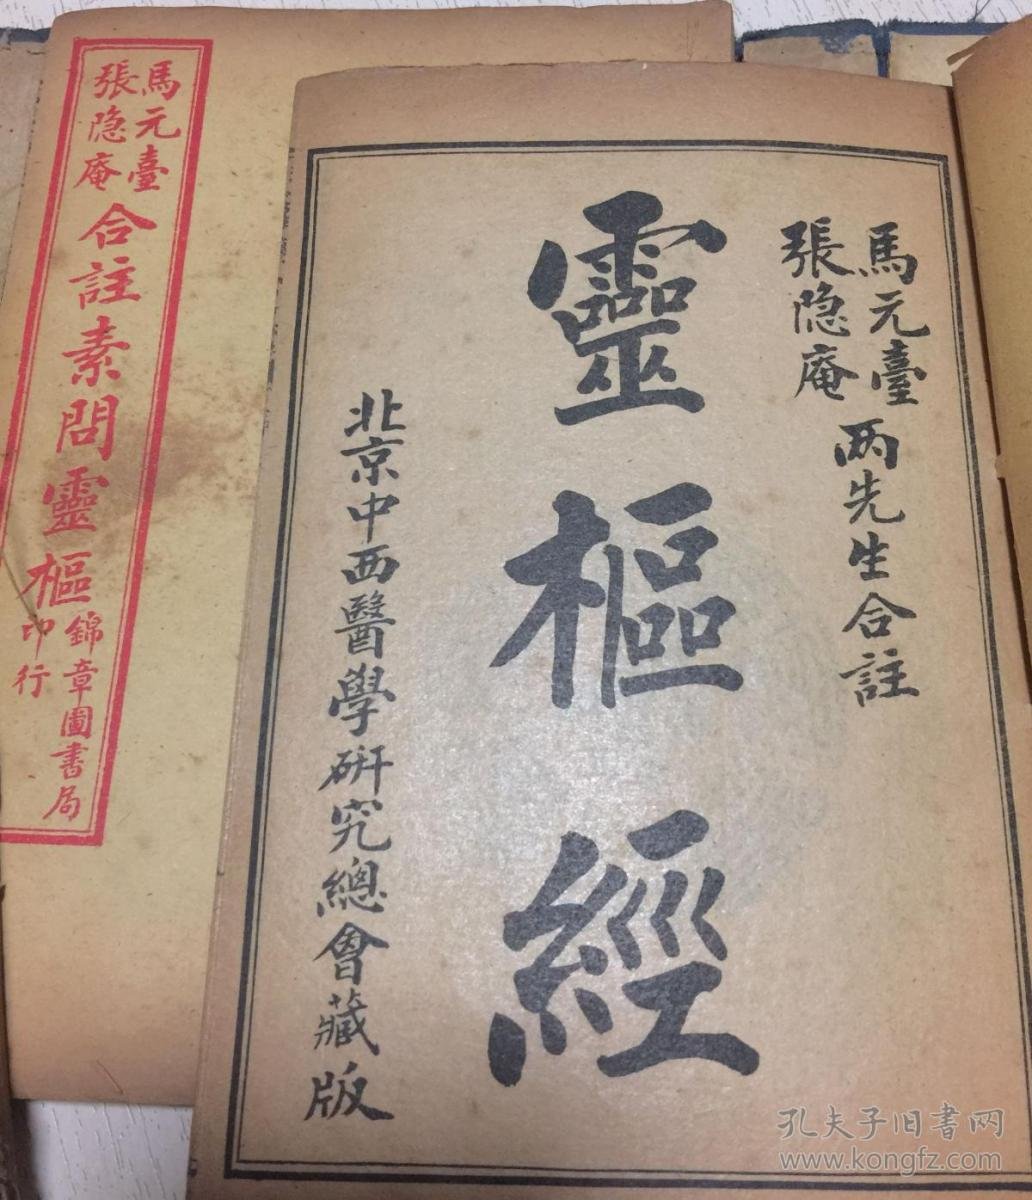 馬元臺
張隐庵
两先生合註
靈樞經
北京中西醫學研究總會藏版
馬元臺
張隐庵
合註素問靈樞
錦章圖書局
印行
孔夫子旧书网
www.kongfz.com